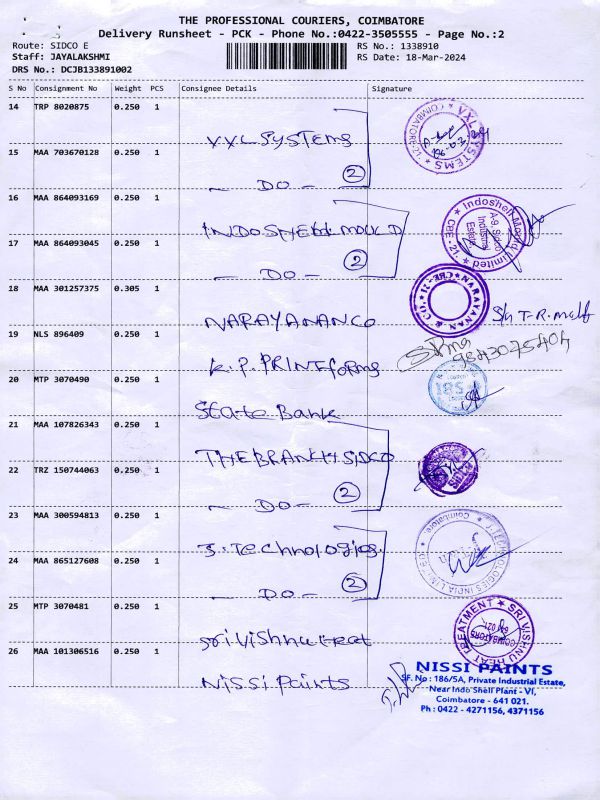 THE PROFESSIONAL COURIERS, COIMBATORE
Delivery Runsheet - PCK - Phone No.:0422-3505555 - Page No.:2
Route: SIDCO E
RS No.: 1338910
Staff: JAYALAKSHMI
RS Date: 18-Mar-2024
DRS No.: DCJB133891002
S No Consignment No Weight PCS Consignee Details Signature
14 TRP 8020875 0.250 1
VXL SYSTEMS
COIMBATORE-21. VXL SYSTEMS
15 MAA 703670128 0.250 1
- DO - 2
16 MAA 864093169 0.250 1
INDOSHELL MOULD
Indoshell Mould Limited CBE - 21.
A-9, Sidco
Industrial
Estate
17 MAA 864093045 0.250 1
- DO - 2
18 MAA 301257375 0.305 1
NARAYANANCO
NARAYANAN & CO. CBE-21
19 NLS 896409 0.250 1
K.P. PRINTforms
9843075404
20 MTP 3070490 0.250 1
State Bank
21 MAA 107826343 0.250 1
THE BRANCH SIDCO
22 TRZ 150744063 0.250 1
- DO - 2
23 MAA 300594813 0.250 1
J. Technologies.
TECHNOLOGIES INDIA LIMITED Coimbatore
24 MAA 865127608 0.250 1
- DO - 2
25 MTP 3070481 0.250 1
Sri Vishnu Heat
SRI VISHNU HEAT TREATMENT
COIMBATORE
641 021.
26 MAA 101306516 0.250 1
Nissi Paints
NISSI PAINTS
SF. No : 186/5A, Private Industrial Estate,
Near Indo Shell Plant - VI,
Coimbatore - 641 021.
Ph : 0422 - 4271156, 4371156